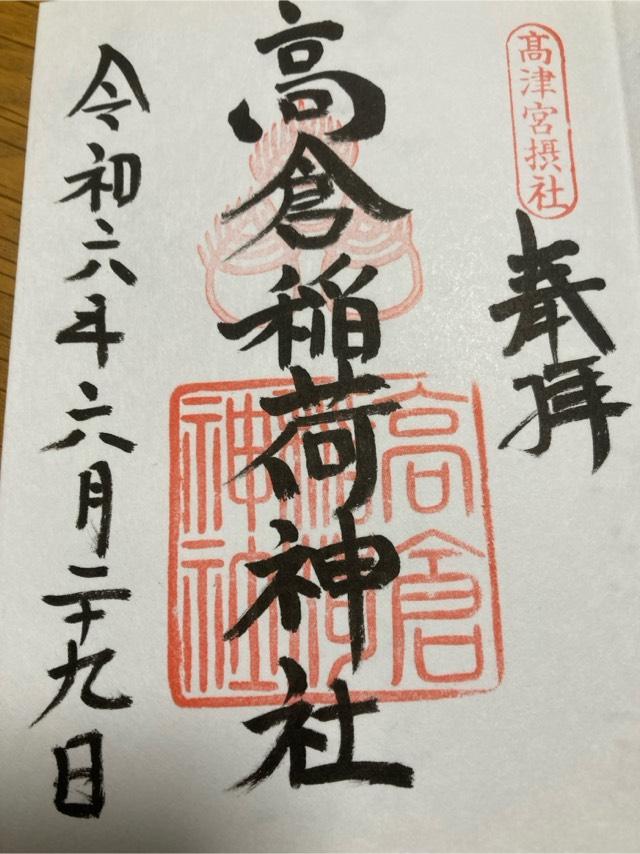 髙津宮摂社
奉拝
高倉稲荷神社
高倉
稲荷
神社
令和六年六月二十九日